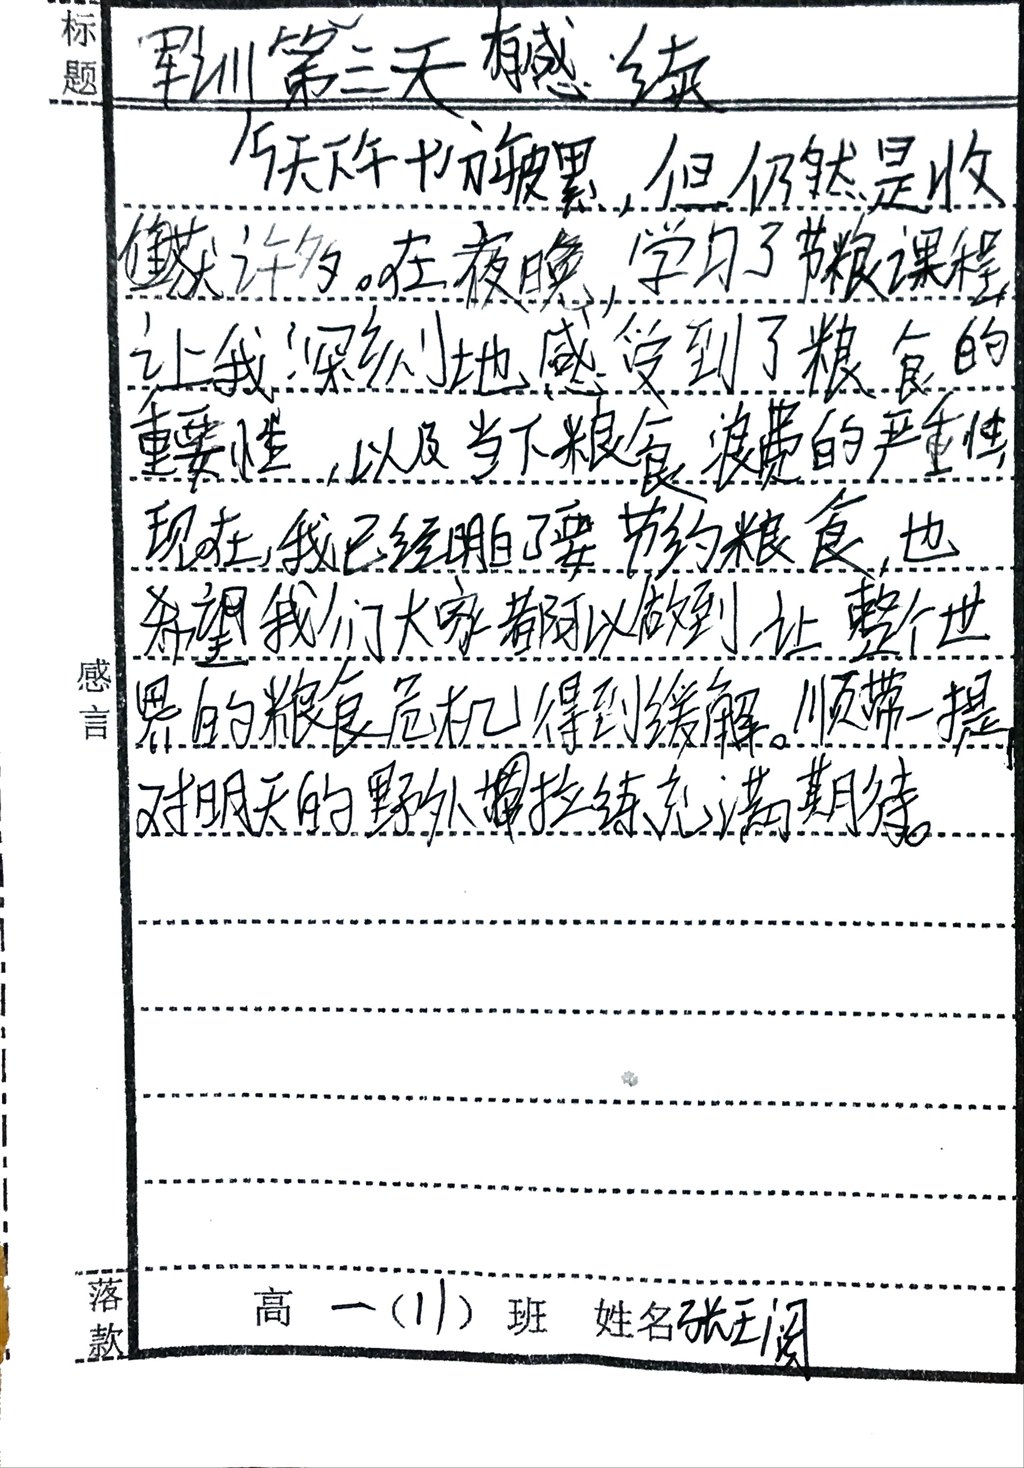 标题
军训第三天有感 续
今天下午十分疲累，但仍然是收
获许多。在夜晚，学习了节粮课程，
让我深刻地感受到了粮食的
重要性，以及当下粮食浪费的严重性，
现在，我已经明白了要节约粮食，也
希望我们大家都可以做到，让整个世
感言
界的粮食危机得到缓解。顺带一提，
对明天的野外拉练充满期待。
落款
高一（11）班 姓名张王阅